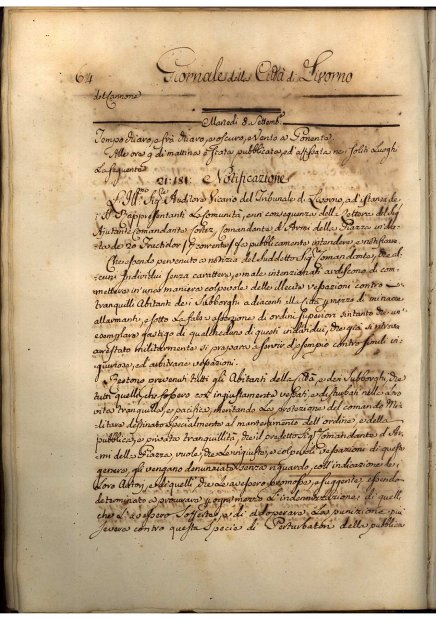 64 Giornale della Città di Livorno
del Cannone
Martedi 8. Settemb.
Tempo chiaro, e fra chiaro, e oscuro, e Vento a Ponente.
Alle ore 9 di mattina è stata pubblicata, ed affissata nei soliti Luoghi
La seguente
Notificazione
L'Ill.mo Sig.re Auditore Vicario del Tribunale di Livorno, ad istanza de
Rappresentanti La Comunità, e in conseguenza della Lettera del Sig.
Aiutante Comandante Comandante d'Armi della Piazza in da-
ta de 20 Fructidor fa pubblicamente intendere, e notificare
Che essendo pervenuto a notizia del Suddetto Sig. Comandante, che al-
cuni Individui senza carattere, e male intenzionati ardiscono di com-
mettere in una maniera colpevole delle illecite vessazioni contro i
tranquilli Abitanti dei Subborghi adiacenti alla città per mezzo di minacce
allarmanti, e sotto La falsa asserzione di ordini Superiori intanto che un
esemplare gastigo di qualcheduno di questi individui, che già si ritrova
arrestato militarmente si prepara a servir d'esempio contro simili in-
giuriose, ed arbitrarie vessazioni.
Restono prevenuti tutti gli Abitanti della città, e dei Subborghi, che
tutti quelli, che fossero così ingiustamente vessati, e disturbati nella loro
vita tranquilla, e pacifica, meritando La protezione del comando Mili-
tare destinato specialmente al mantenimento dell'ordine, e della
pubblica, e privata tranquillità, che il prefetto Sig. Comandante d'Ar-
mi della Piazza, vuole, che Le ingiuste, e colpevoli vessazioni di questo
genere, gli vengano denunziate senza riguardo, coll'indicazione dei
Loro Autori, e di quelli che Le avessero promosse, e suggerite, essendo
determinato a procurare per ogni mezzo L'indennizzazione di quelli,
che L'avessero Sofferte, e di adoperare La punizione più
severa contro questa Specie di Perturbatori della pubblica